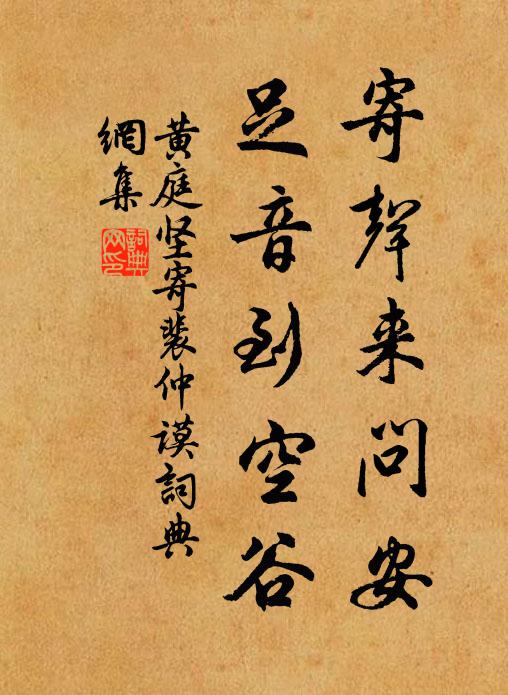 寄聲来問安
足音到空谷
黄庭坚寄裴仲谟詞典
網集
詞典網印